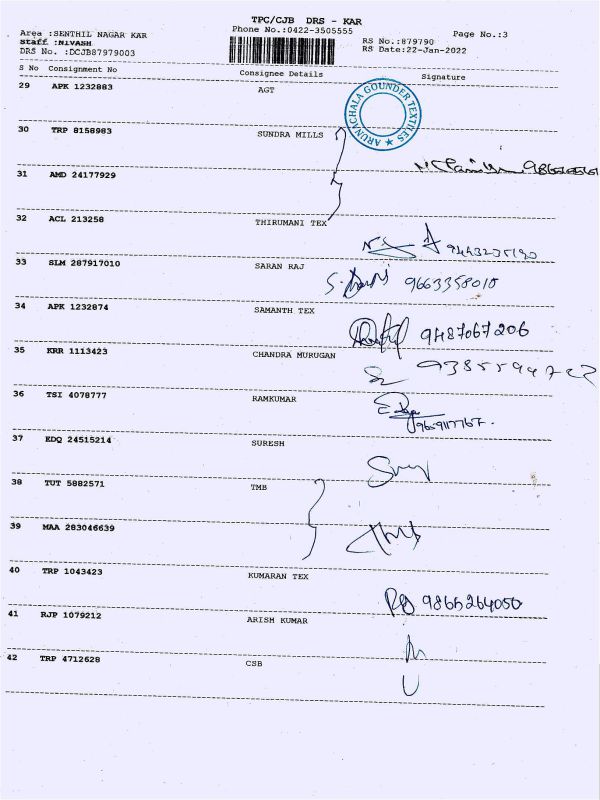 TPC/CJB DRS - KAR
Area :SENTHIL NAGAR KAR
Phone No.:0422-3505555
Page No.:3
Staff :NIVASH
RS No.:879790
DRS No. :DCJB87979003
RS Date:22-Jan-2022
S No Consignment No Consignee Details Signature
29 APK 1232883 AGT
ARUNACHALA GOUNDER TEXTILES
30 TRP 8158983 SUNDRA MILLS
31 AMD 24177929
32 ACL 213258 THIRUMANI TEX
33 SLM 287917010 SARAN RAJ
9663358018
34 APK 1232874 SAMANTH TEX
9487067206
35 KRR 1113423 CHANDRA MURUGAN
36 TSI 4078777 RAMKUMAR
37 EDQ 24515214 SURESH
38 TUT 5882571 TMB
39 MAA 283046639
40 TRP 1043423 KUMARAN TEX
9865264050
41 RJP 1079212 ARISH KUMAR
42 TRP 4712628 CSB